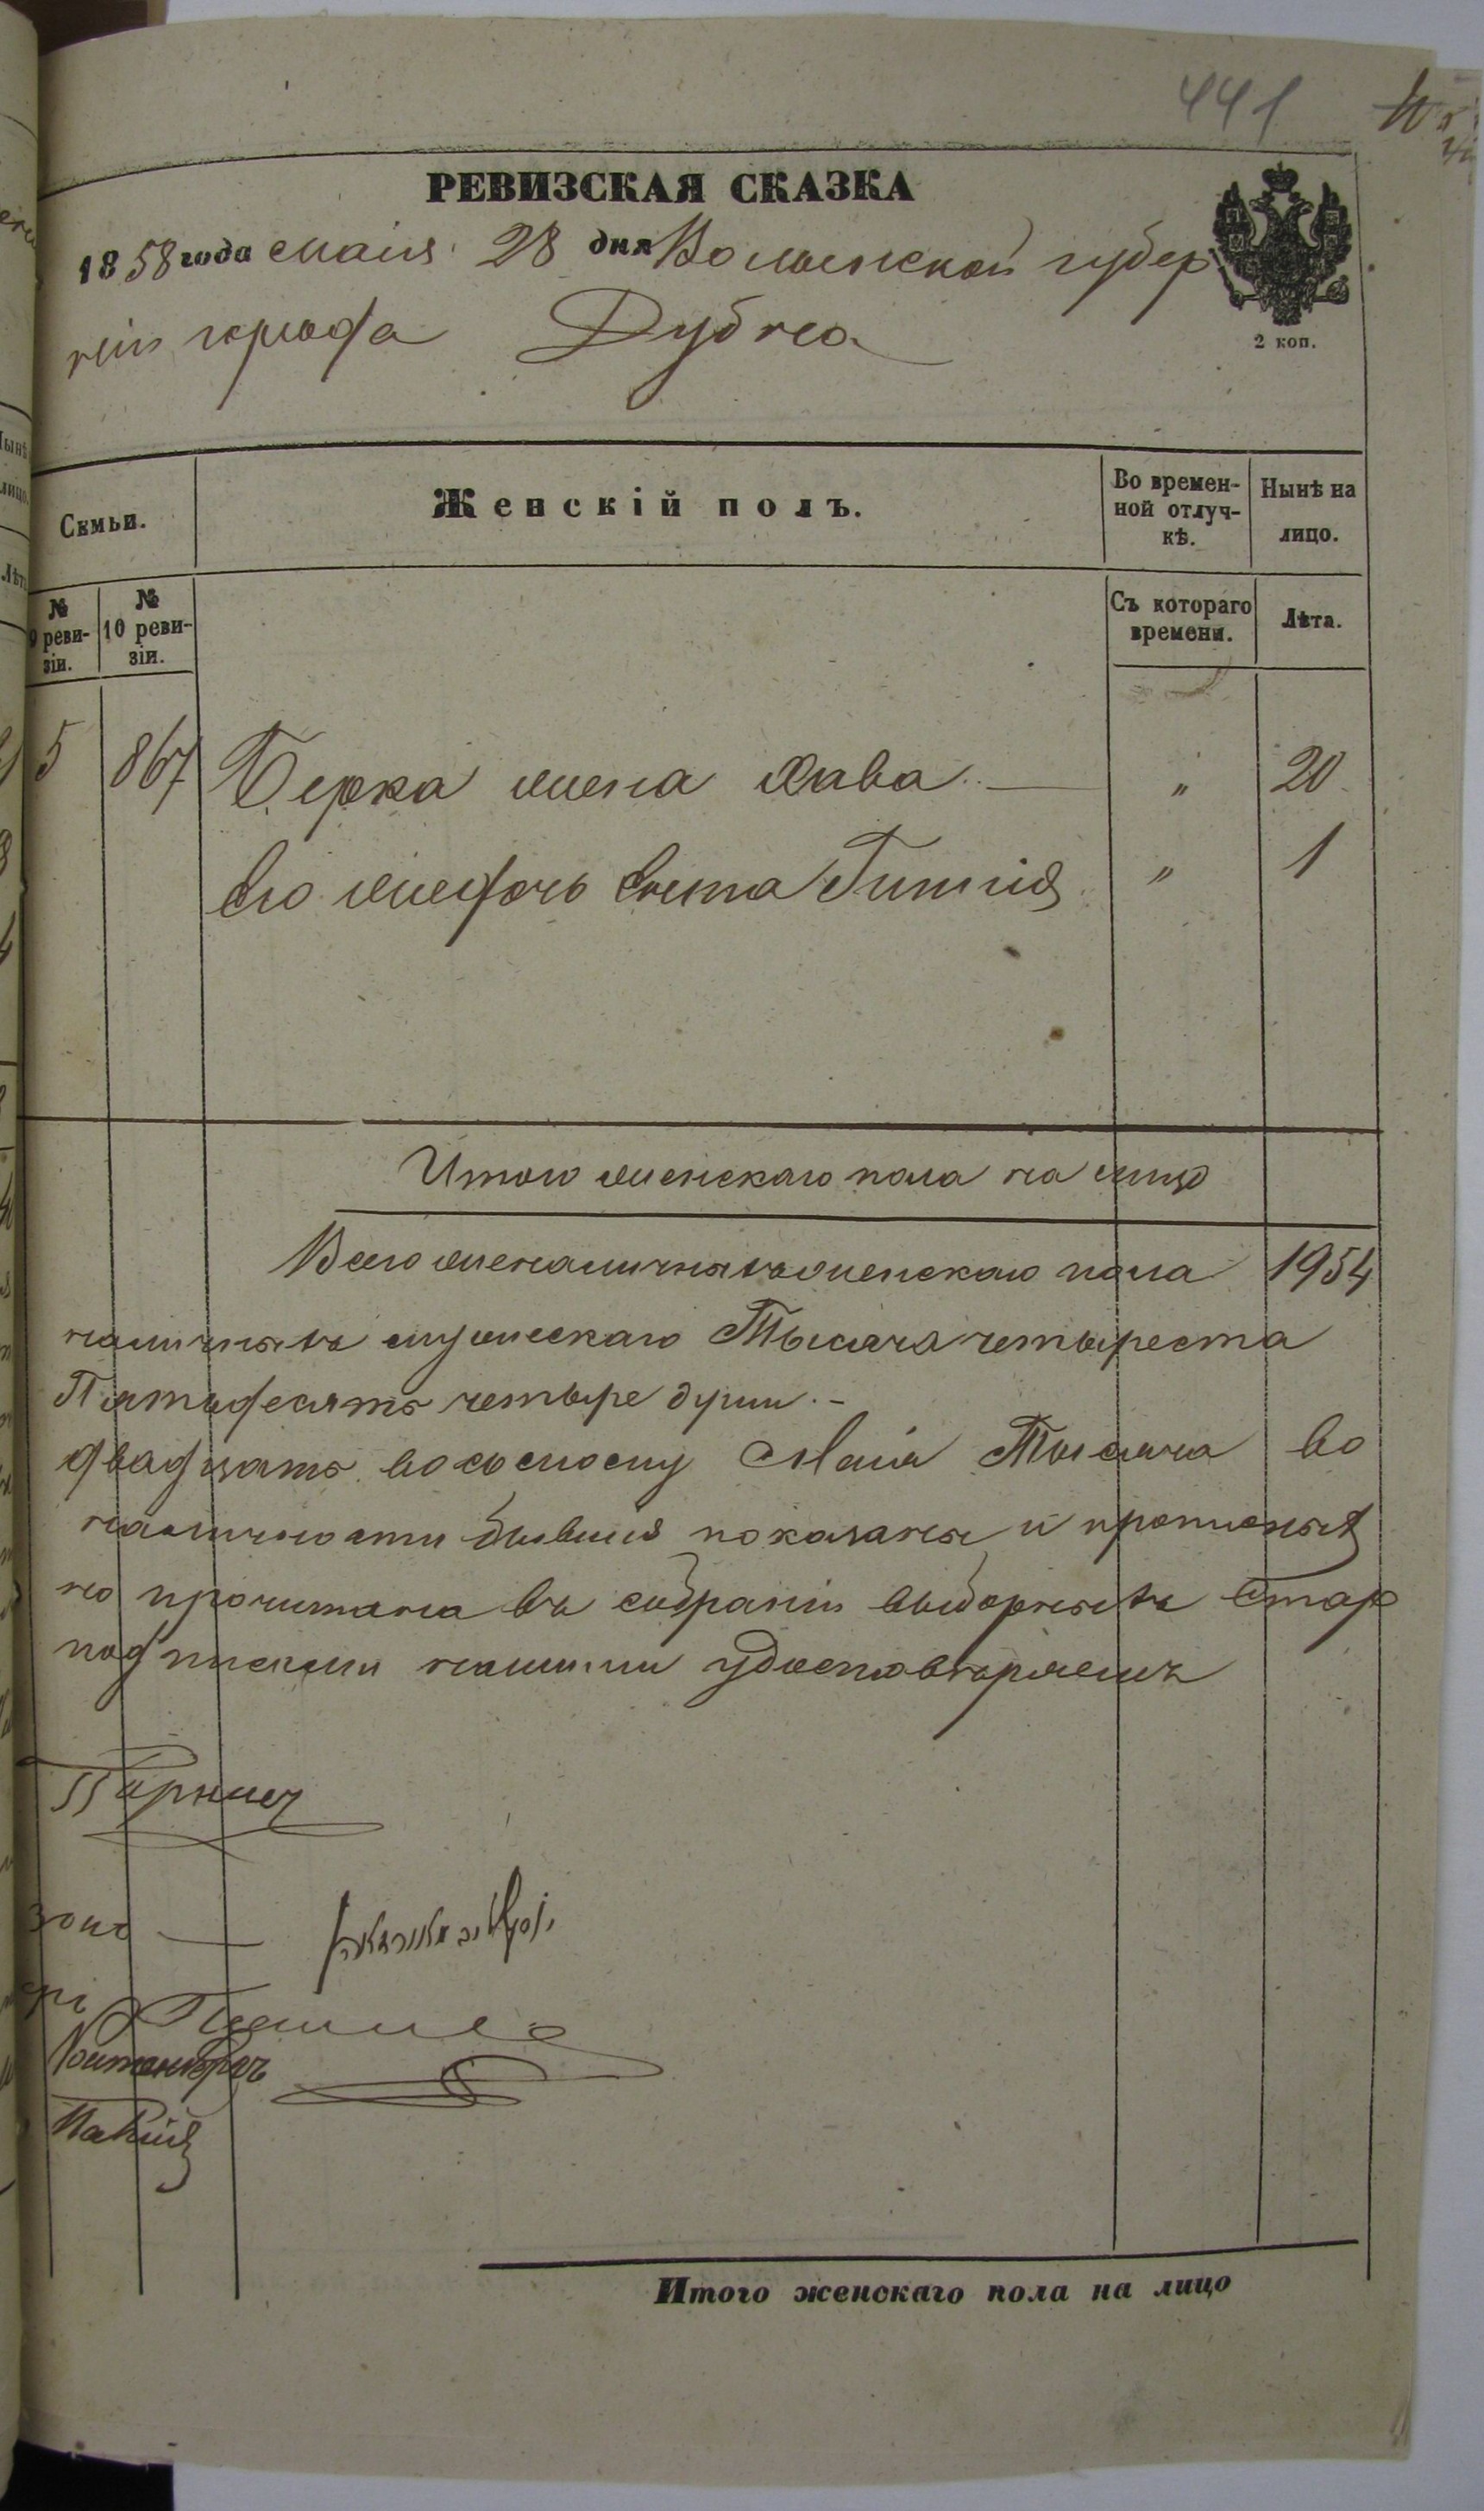 441
РЕВИЗСКАЯ СКАЗКА
1858 года маія 28 дня Волынской губер
ніи города Дубна
2 коп.
Семьи.
Женскій полъ.
Во времен-
ной отлуч-
кѣ.
Нынѣ на
лицо.
№
9 реви-
зіи.
№
10 реви-
зіи.
Съ котораго
времени.
Лѣта.
5 867 Берка жена Хава — " 20
Его дочь Гитля " 1
Итого женскаго пола на лицо
Всего же наличныхъ женскаго пола 1954
наличныхъ мужескаго Тысяча четыреста
Пятьдесятъ четыре души. –
двадцать восьмому Маія Тысяча во
наличности бывшія показаны и
но прочитана въ собраніи выборныхъ Стар
подписями нашими удостовѣряемъ
Итого женскаго пола на лицо